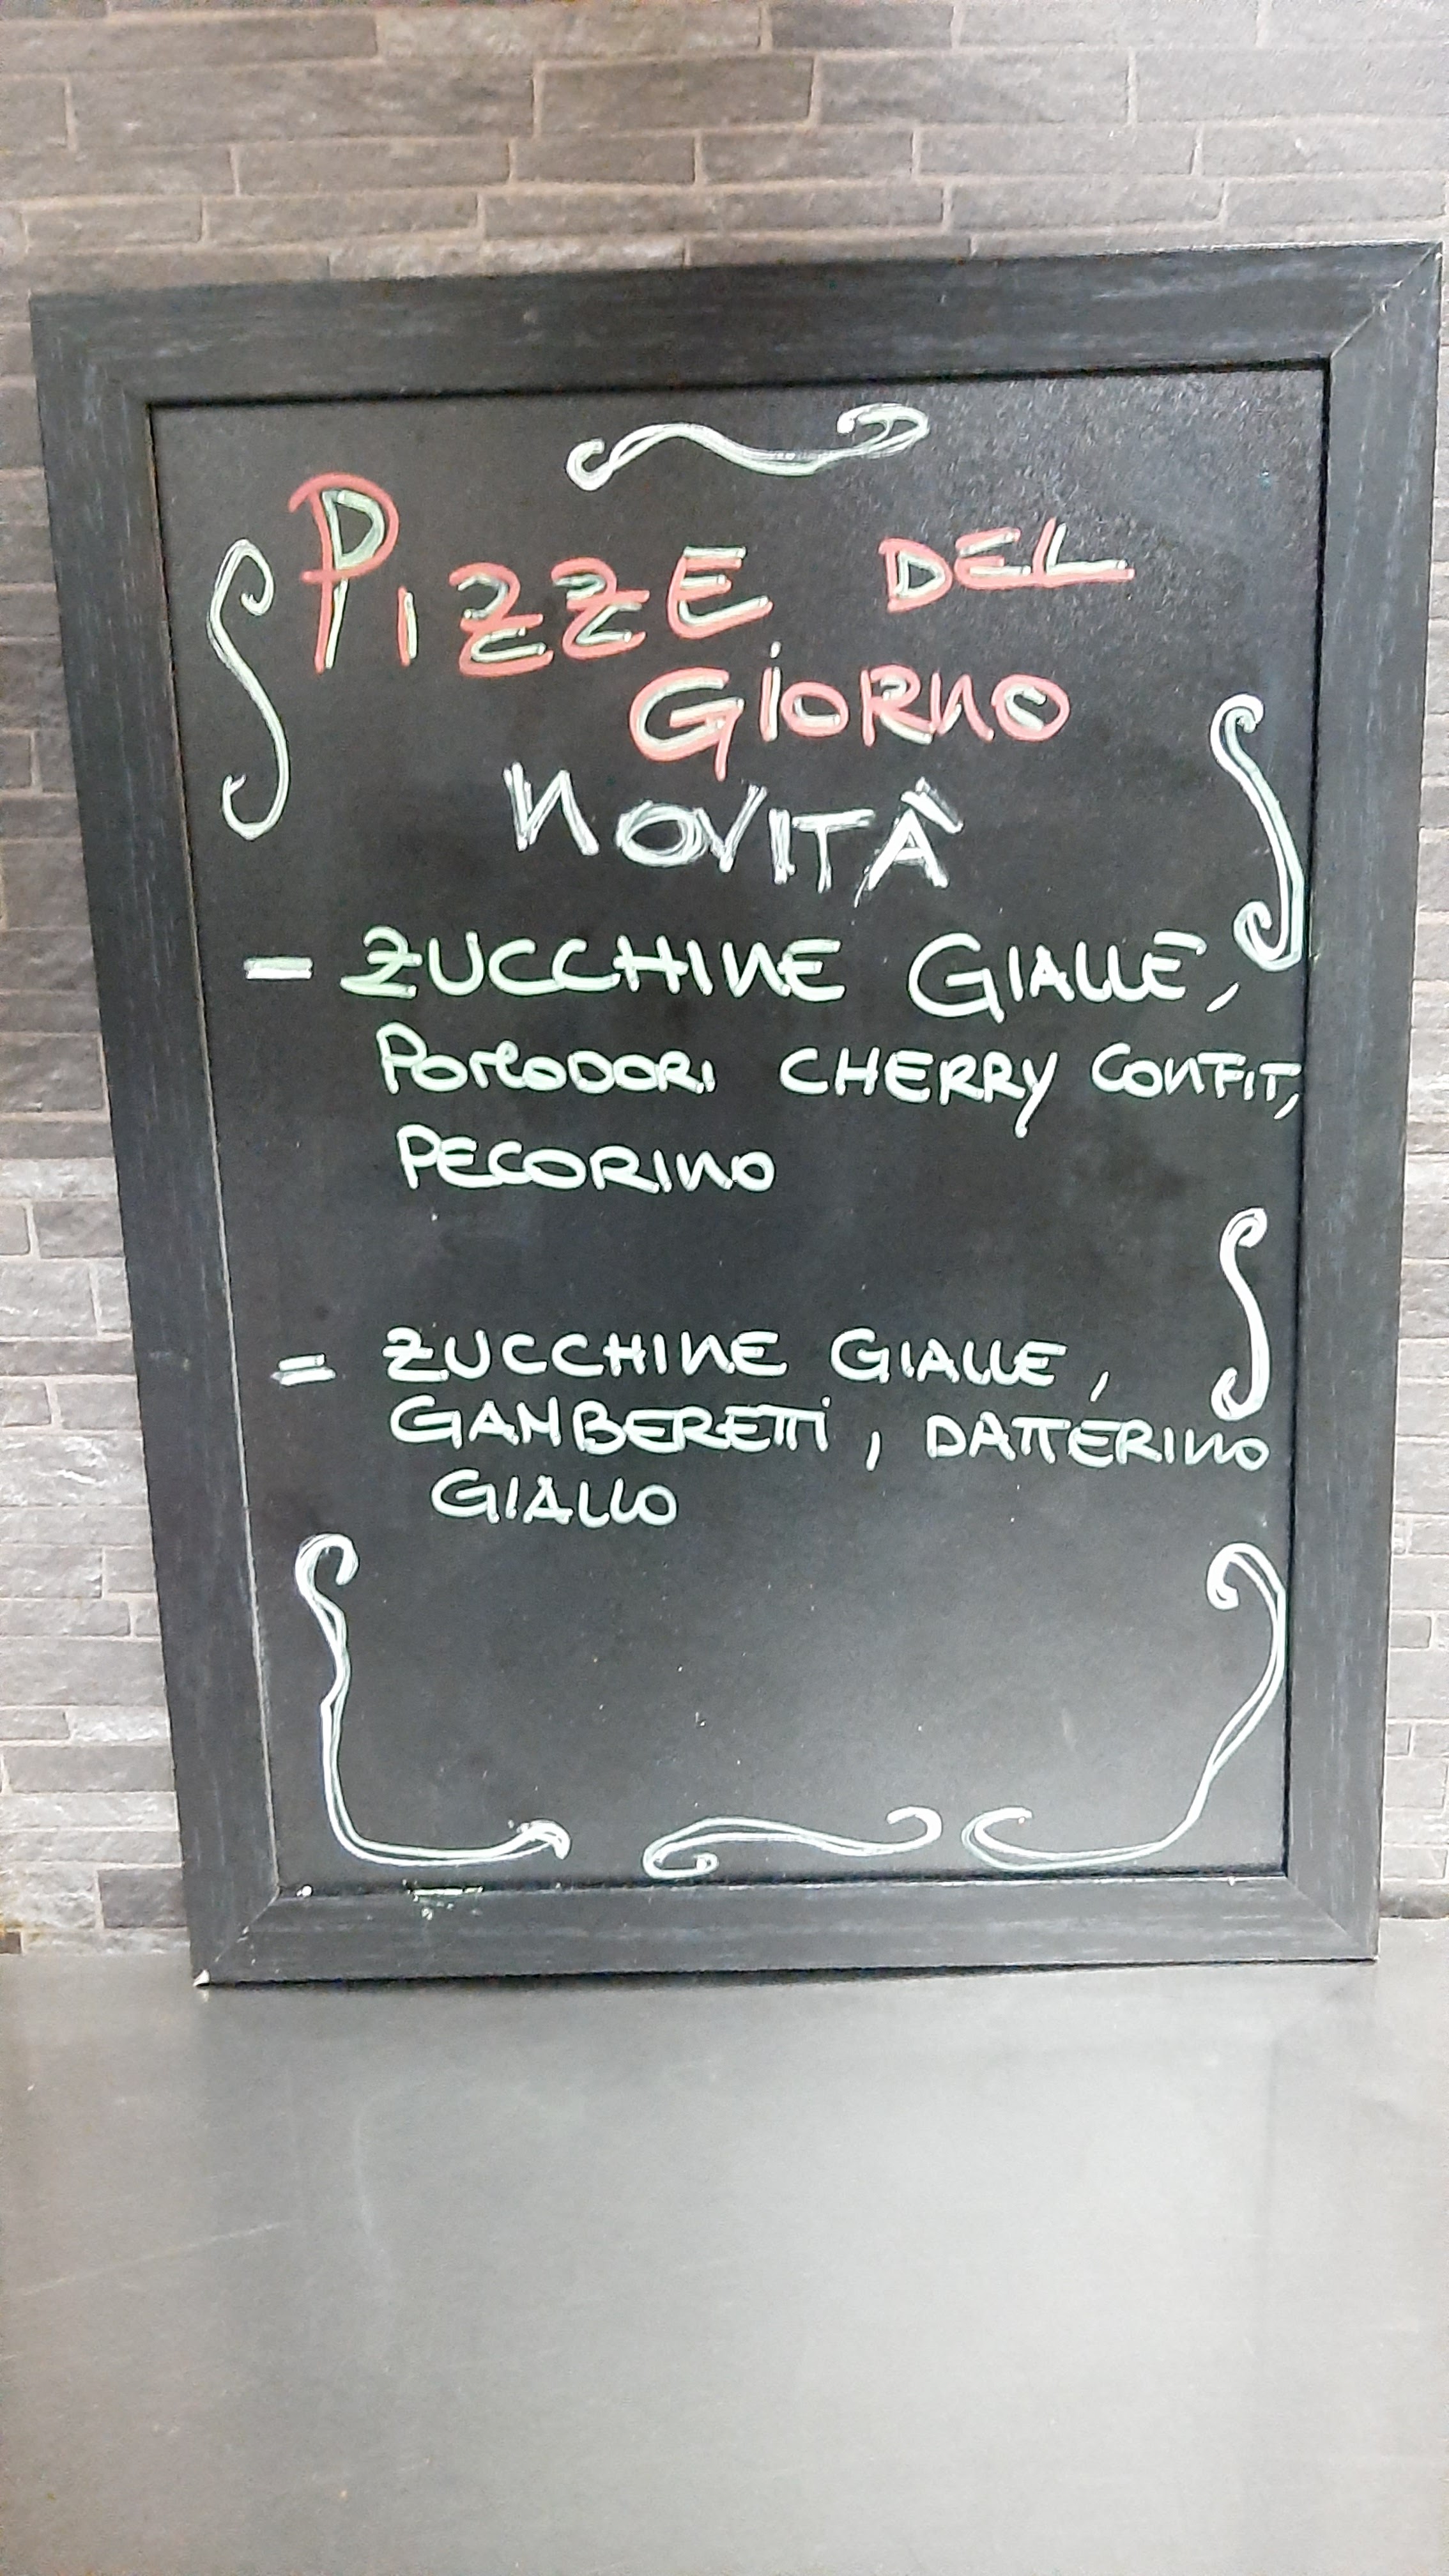 PIZZE DEL
GIORNO
NOVITÀ
- ZUCCHINE GIALLE,
POMODORI CHERRY CONFIT,
PECORINO
= ZUCCHINE GIALLE,
GAMBERETTI, DATTERINO
GIALLO